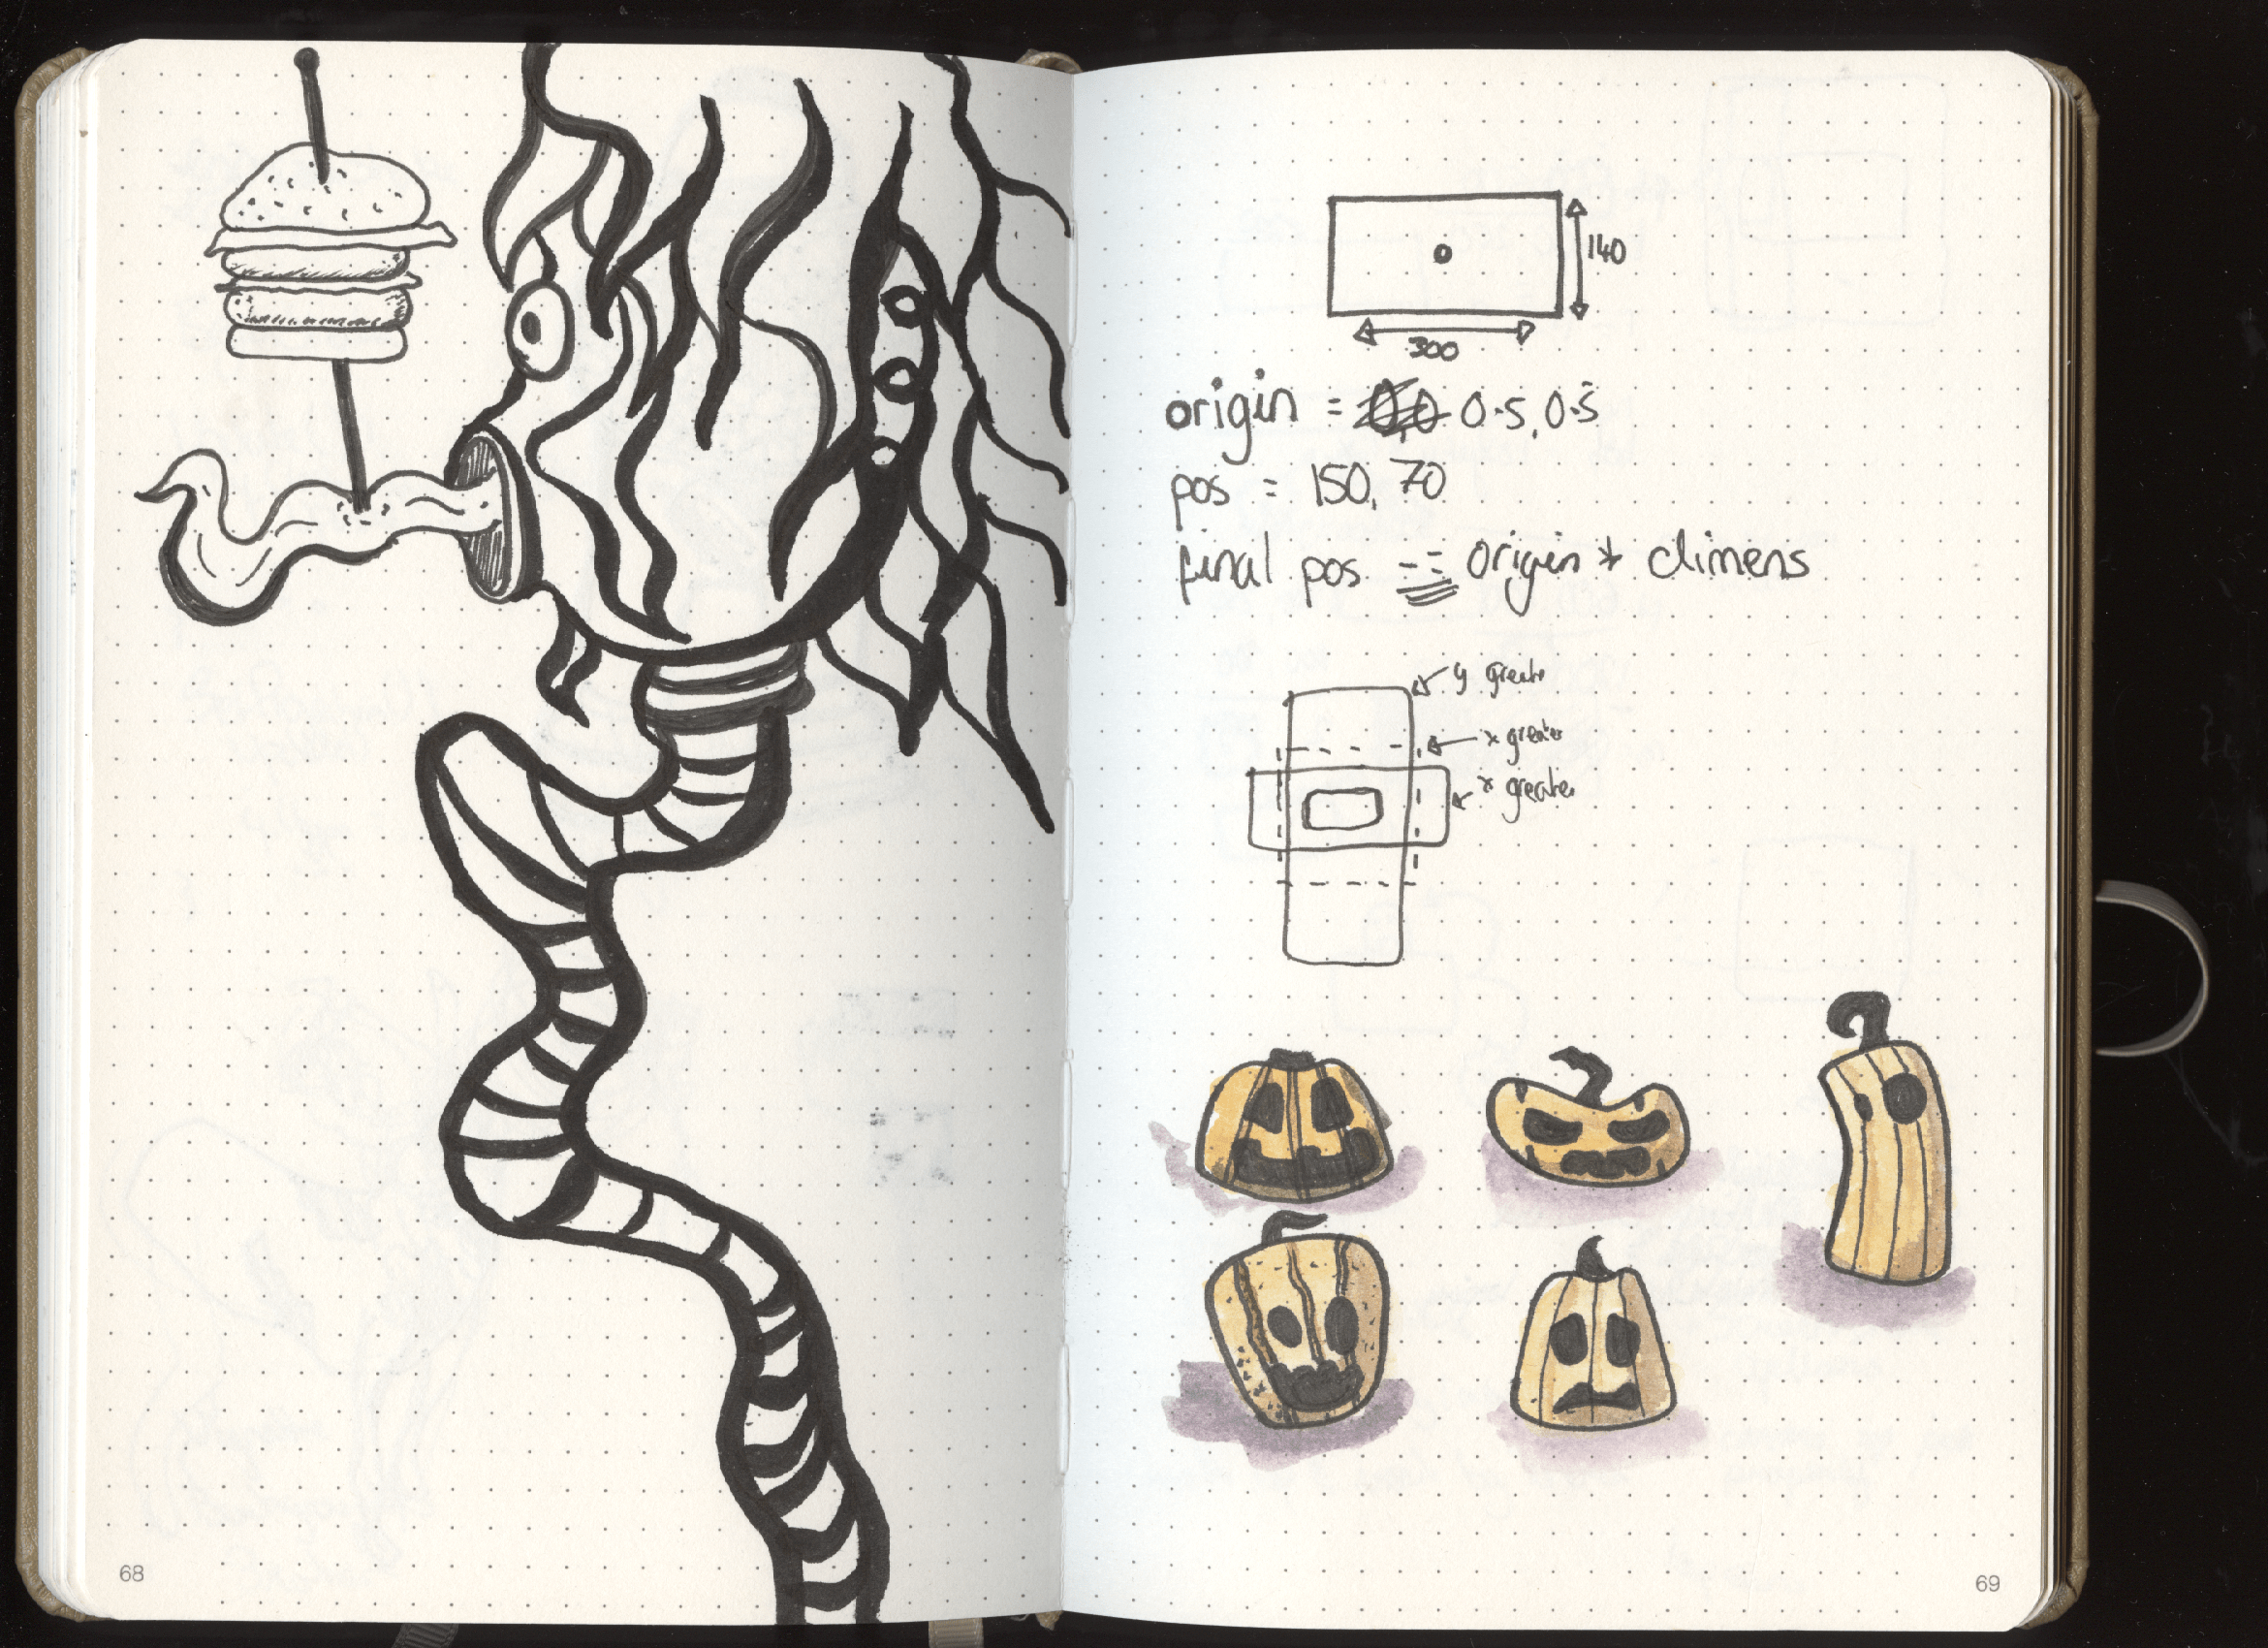 140
300
origin = 0.5, 0.5
pos = 150, 70
final pos -= origin * dimens
y greate
x greater
x greater
68
69